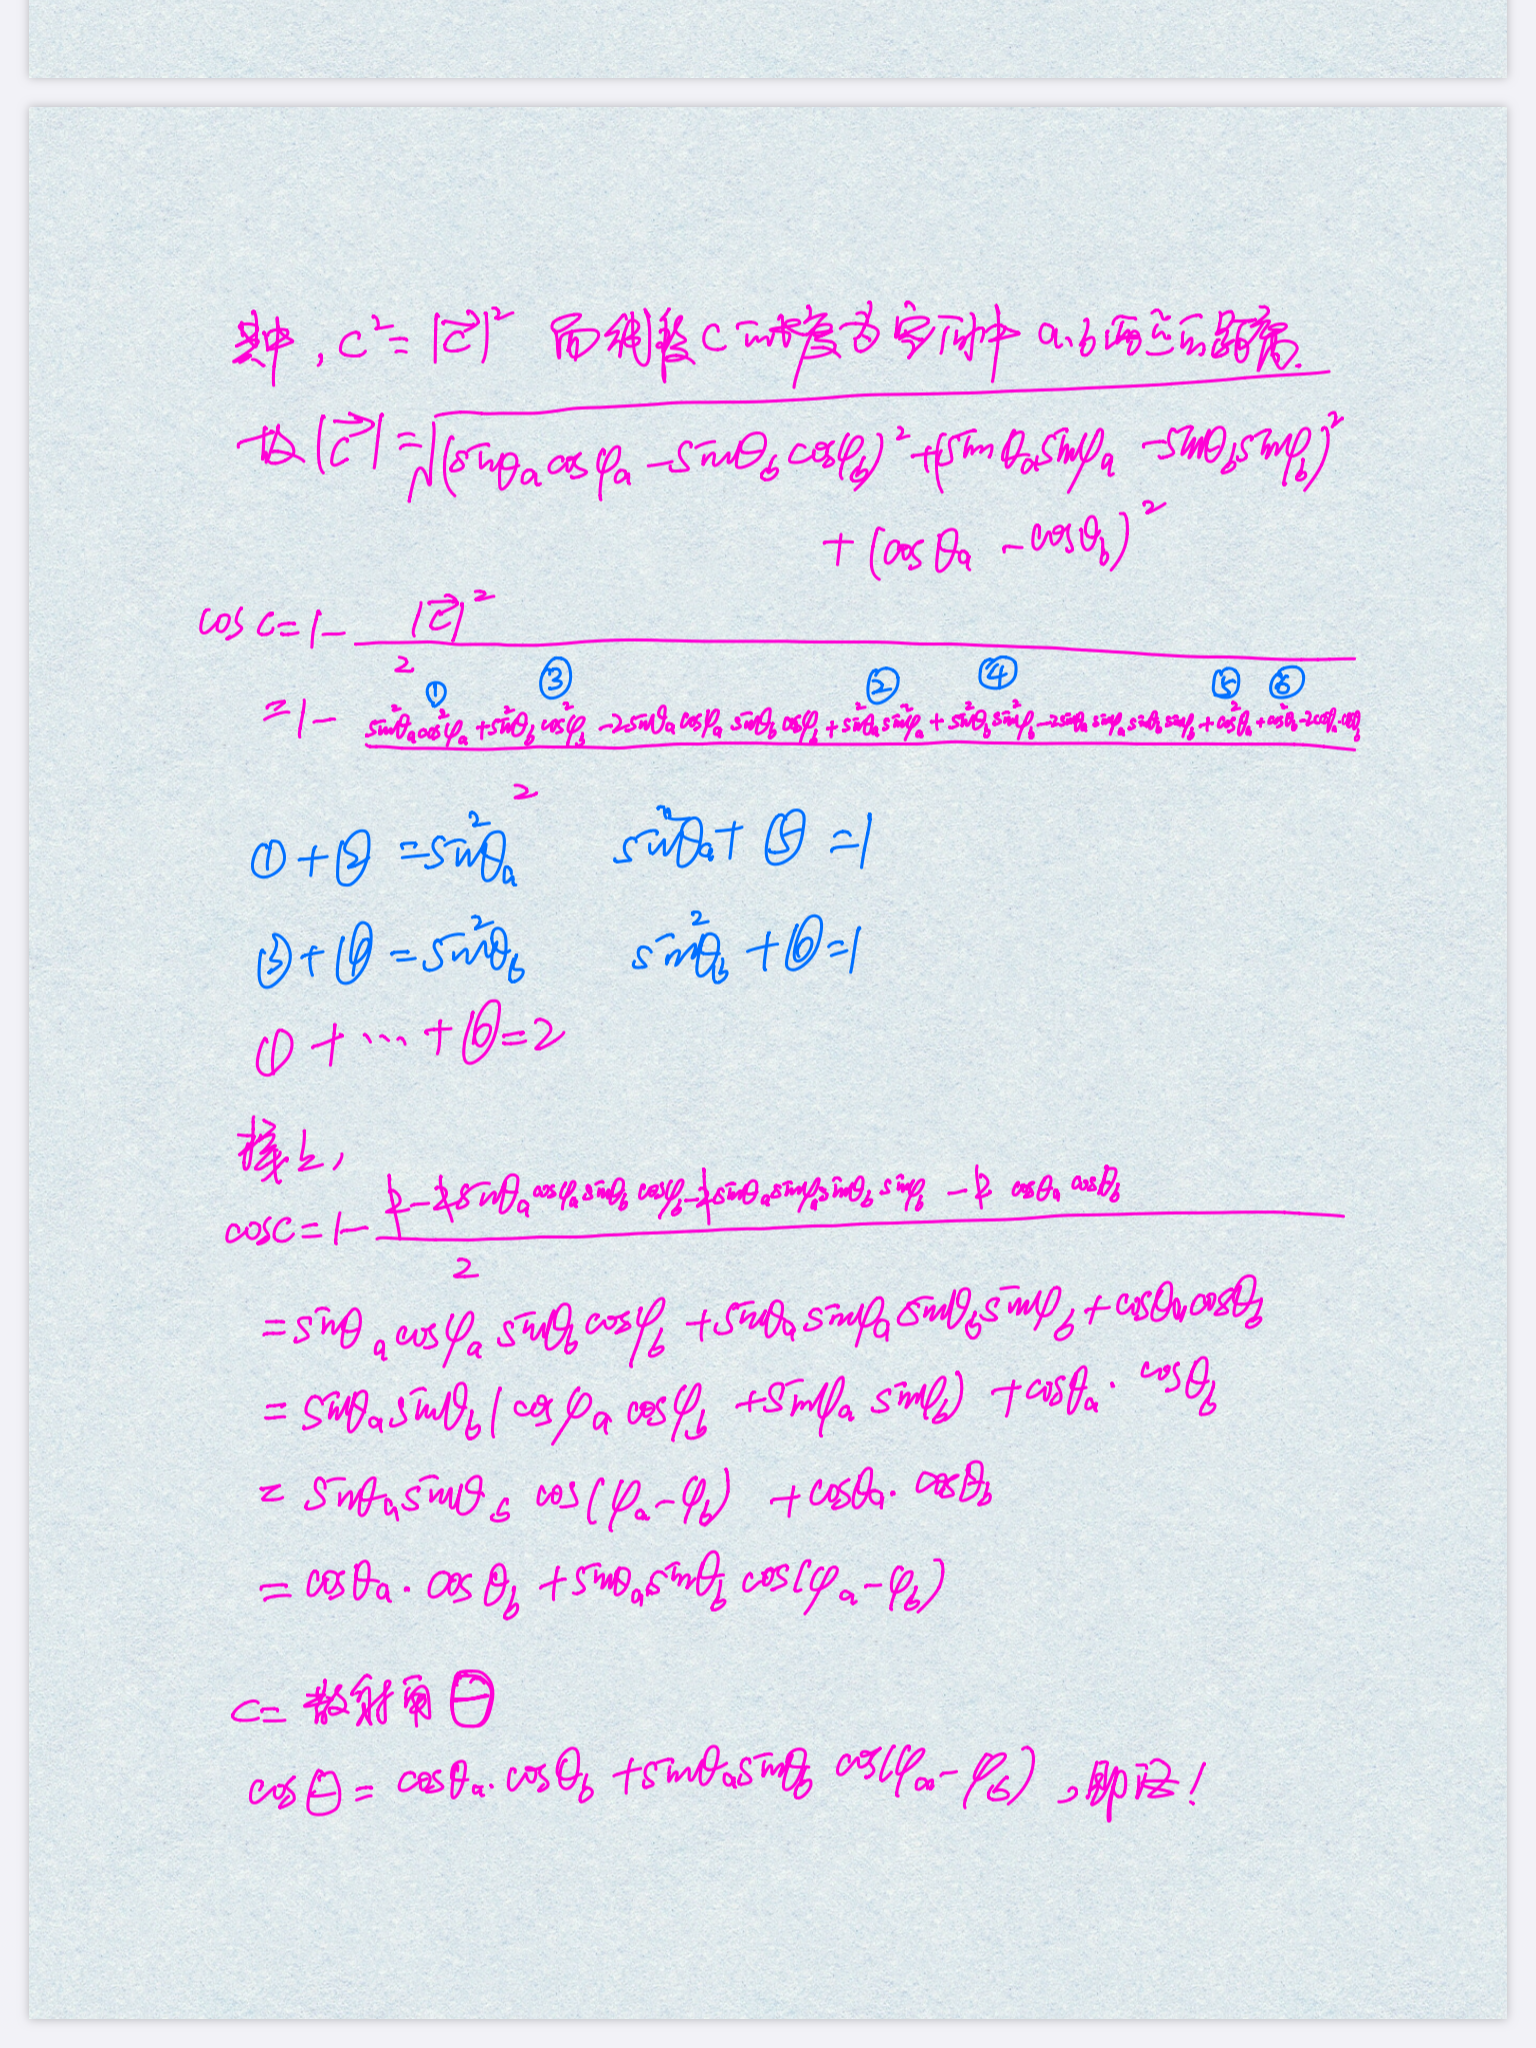 其中, c² = |c⃗|² 而线段c的长度为空间中 a、b两点的距离.
故 |c⃗| = √(sinθₐcosφₐ - sinθ_b cosφ_b)² + (sinθₐsinφₐ - sinθ_b sinφ_b)²
+ (cosθₐ - cosθ_b)²
cos c = 1 - |c⃗|² / 2
① ③ ② ④ ⑤ ⑥
= 1 - (sin²θₐcos²φₐ + sin²θ_b cos²φ_b - 2sinθₐcosφₐ sinθ_b cosφ_b + sin²θₐsin²φₐ + sin²θ_b sin²φ_b - 2sinθₐsinφₐsinθ_b sinφ_b + cos²θₐ + cos²θ_b - 2cosθₐ·cosθ_b) / 2
① + ② = sin²θₐ sin²θₐ + ⑤ = 1
③ + ④ = sin²θ_b sin²θ_b + ⑥ = 1
① + ... + ⑥ = 2
接上,
cos c = 1 - (2 - 2sinθₐcosφₐsinθ_b cosφ_b - 2sinθₐsinφₐsinθ_b sinφ_b - 2cosθₐ cosθ_b) / 2
= sinθₐcosφₐ sinθ_b cosφ_b + sinθₐsinφₐsinθ_b sinφ_b + cosθₐcosθ_b
= sinθₐsinθ_b (cosφₐcosφ_b + sinφₐ sinφ_b) + cosθₐ·cosθ_b
= sinθₐsinθ_b cos(φₐ - φ_b) + cosθₐ·cosθ_b
= cosθₐ·cosθ_b + sinθₐsinθ_b cos(φₐ - φ_b)
c = 散射角Θ
cosΘ = cosθₐ·cosθ_b + sinθₐsinθ_b cos(φₐ - φ_b), 即证!